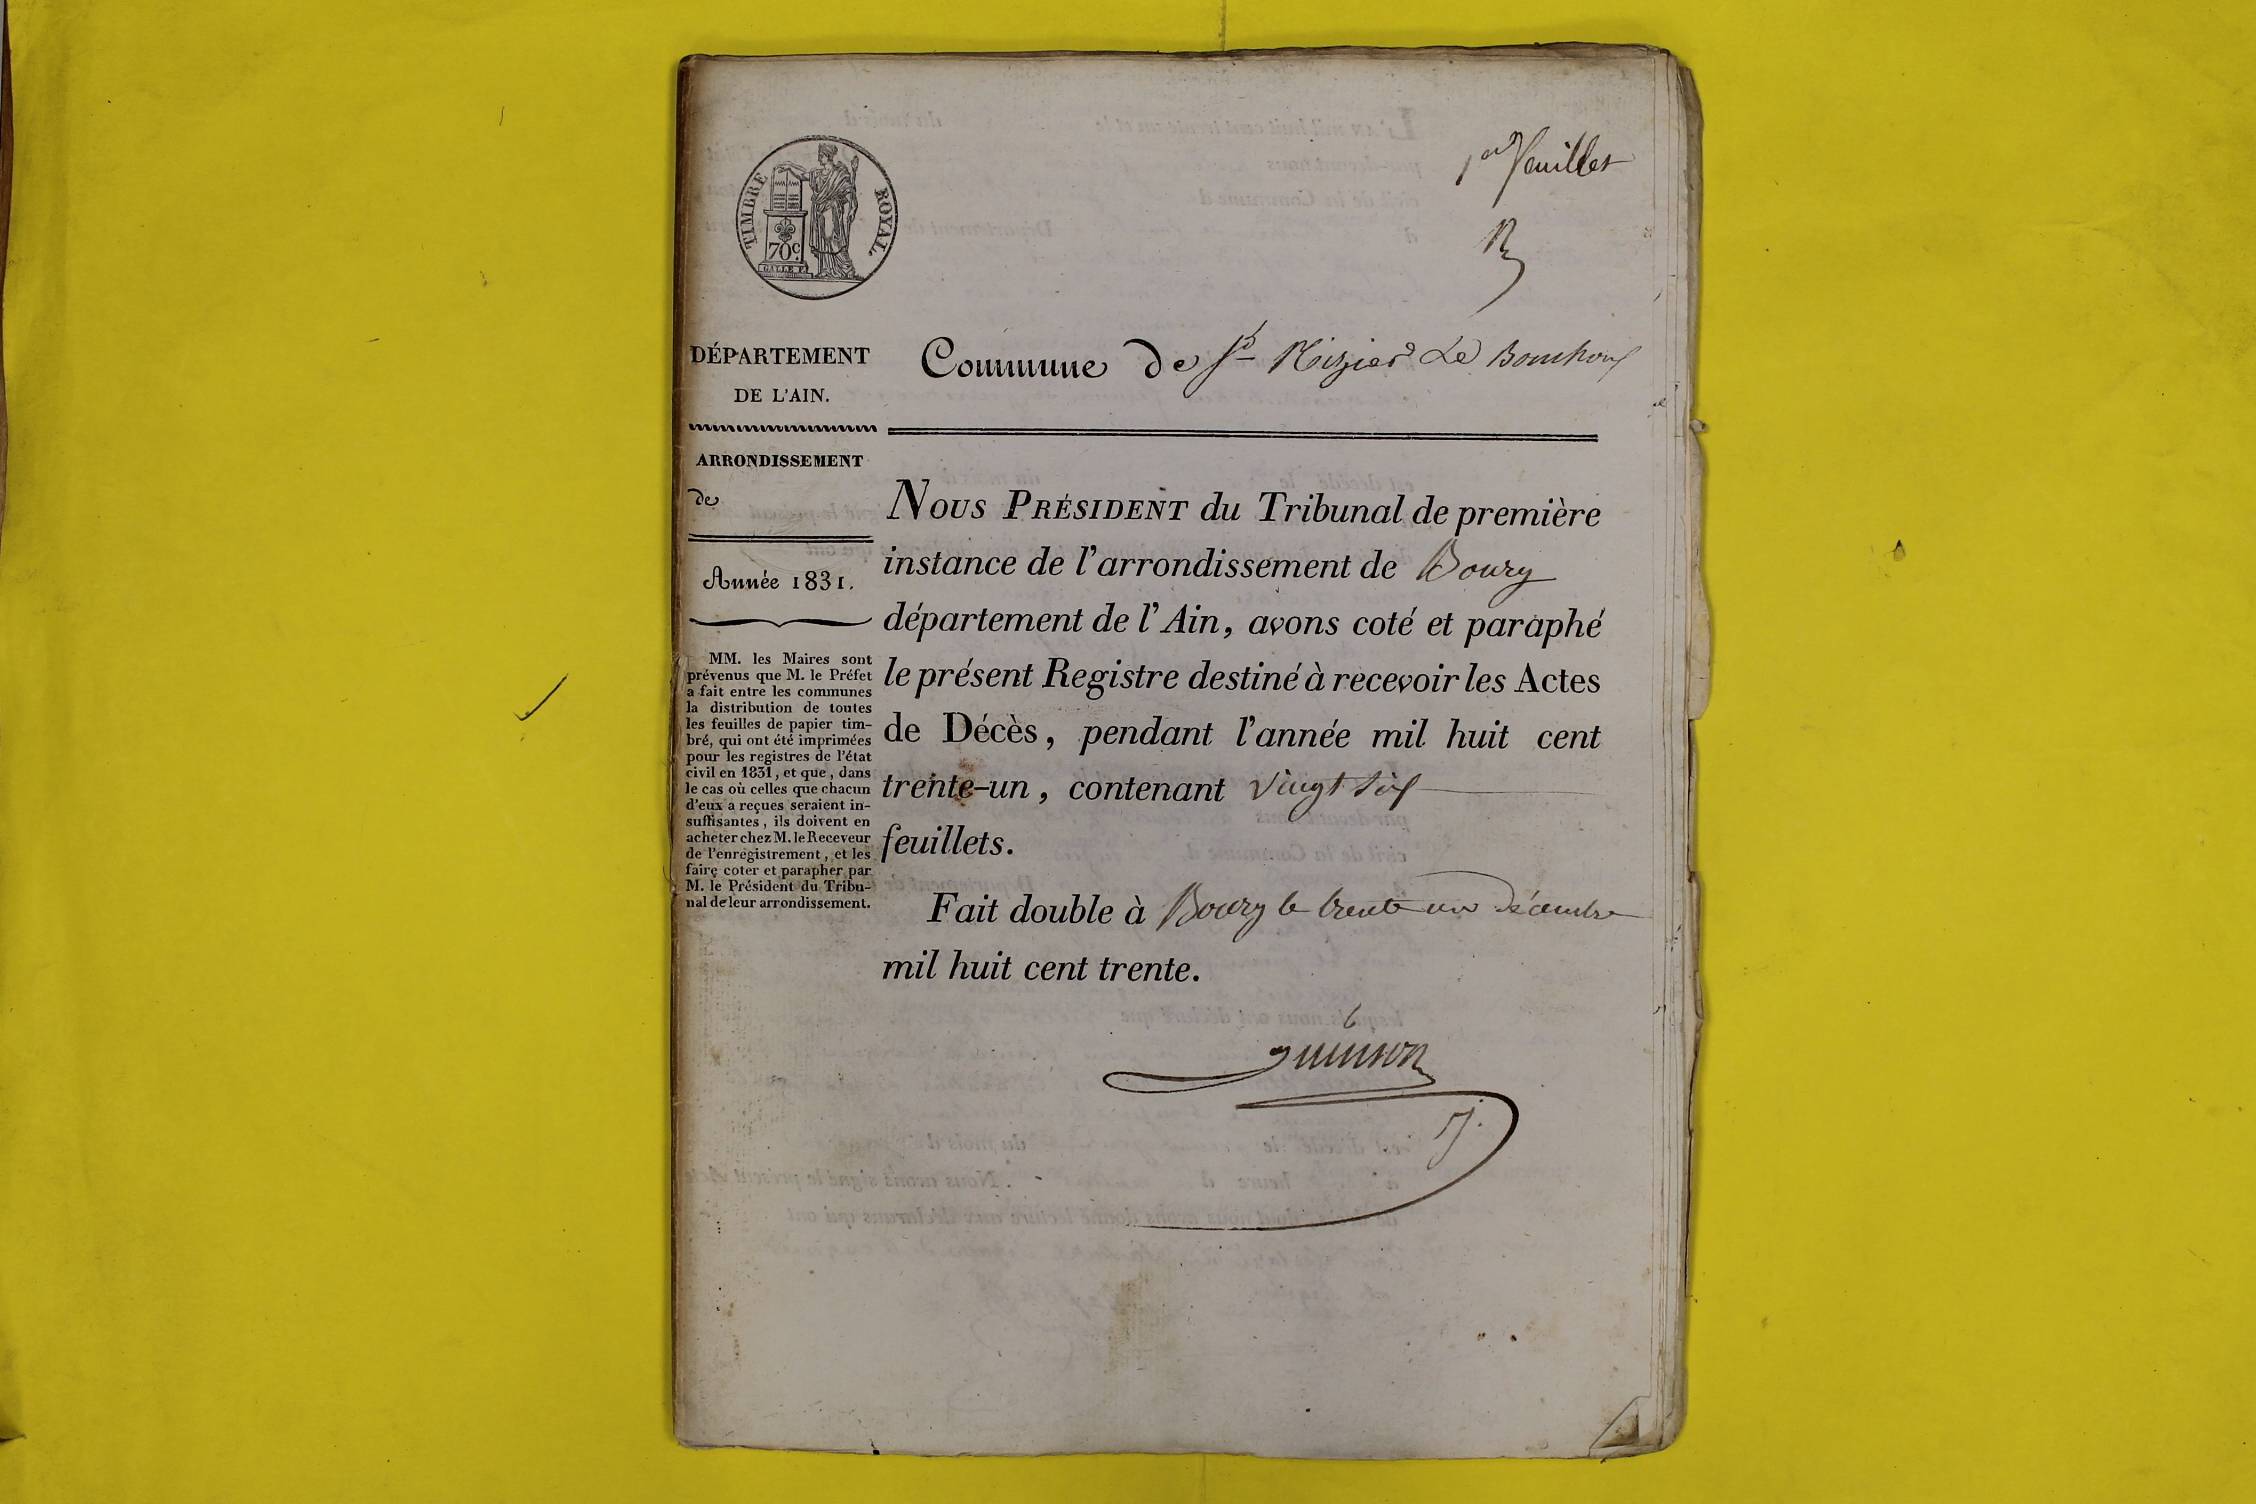 1er feuillet
TIMBRE ROYAL.
70c.
GALLE F.
DÉPARTEMENT
DE L'AIN.
Commune de St Nizier Le Bouchoux
ARRONDISSEMENT
de
Année 1831.
MM. les Maires sont
prévenus que M. le Préfet
a fait entre les communes
la distribution de toutes
les feuilles de papier tim-
bré, qui ont été imprimées
pour les registres de l'état
civil en 1831, et que, dans
le cas où celles que chacun
d'eux a reçues seraient in-
suffisantes, ils doivent en
acheter chez M. le Receveur
de l'enregistrement, et les
faire coter et parapher par
M. le Président du Tribu-
nal de leur arrondissement.
NOUS PRÉSIDENT du Tribunal de première
instance de l'arrondissement de Bourg
département de l'Ain, avons coté et paraphé
le présent Registre destiné à recevoir les Actes
de Décès, pendant l'année mil huit cent
trente-un, contenant vingt six
feuillets.
Fait double à Bourg le trente un décembre
mil huit cent trente.